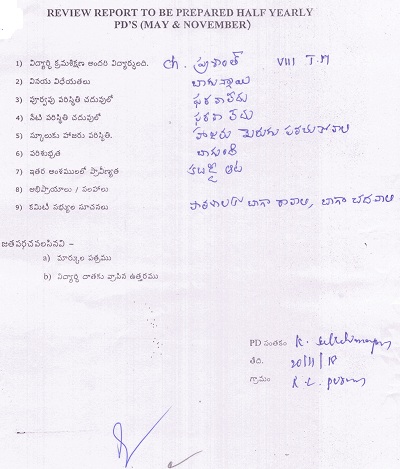 REVIEW REPORT TO BE PREPARED HALF YEARLY
PD'S (MAY & NOVEMBER)
1) విద్యార్థి క్రమశిక్షణ అందరి విద్యార్థులంది. ch. ప్రశాంత్ VIII T.M
2) వినయ విధేయతలు బాగున్నాయి
3) పూర్వపు పరిస్థితి చదువులో ఫరవాలేదు
4) నేటి పరిస్థితి చదువులో ఫరవాలేదు
5) స్కూలుకు హాజరు పరిస్థితి. హాజరు మెరుగు పరచుకోవాలి
6) పరిశుభ్రత బాగుంది
7) ఇతర అంశములలో ప్రావీణ్యత కబడ్డీ ఆట
8) అభిప్రాయాలు / సలహాలు
9) కమిటీ సభ్యుల సూచనలు పాఠశాలకు బాగా రావాలి, బాగా చదవాలి
జతపర్చవలసినవి –
a) మార్కుల పత్రము
b) విద్యార్థి దాతకు వ్రాసిన ఉత్తరము
PD సంతకం K.
తేది. 20/11/18
గ్రామం R.L. puram